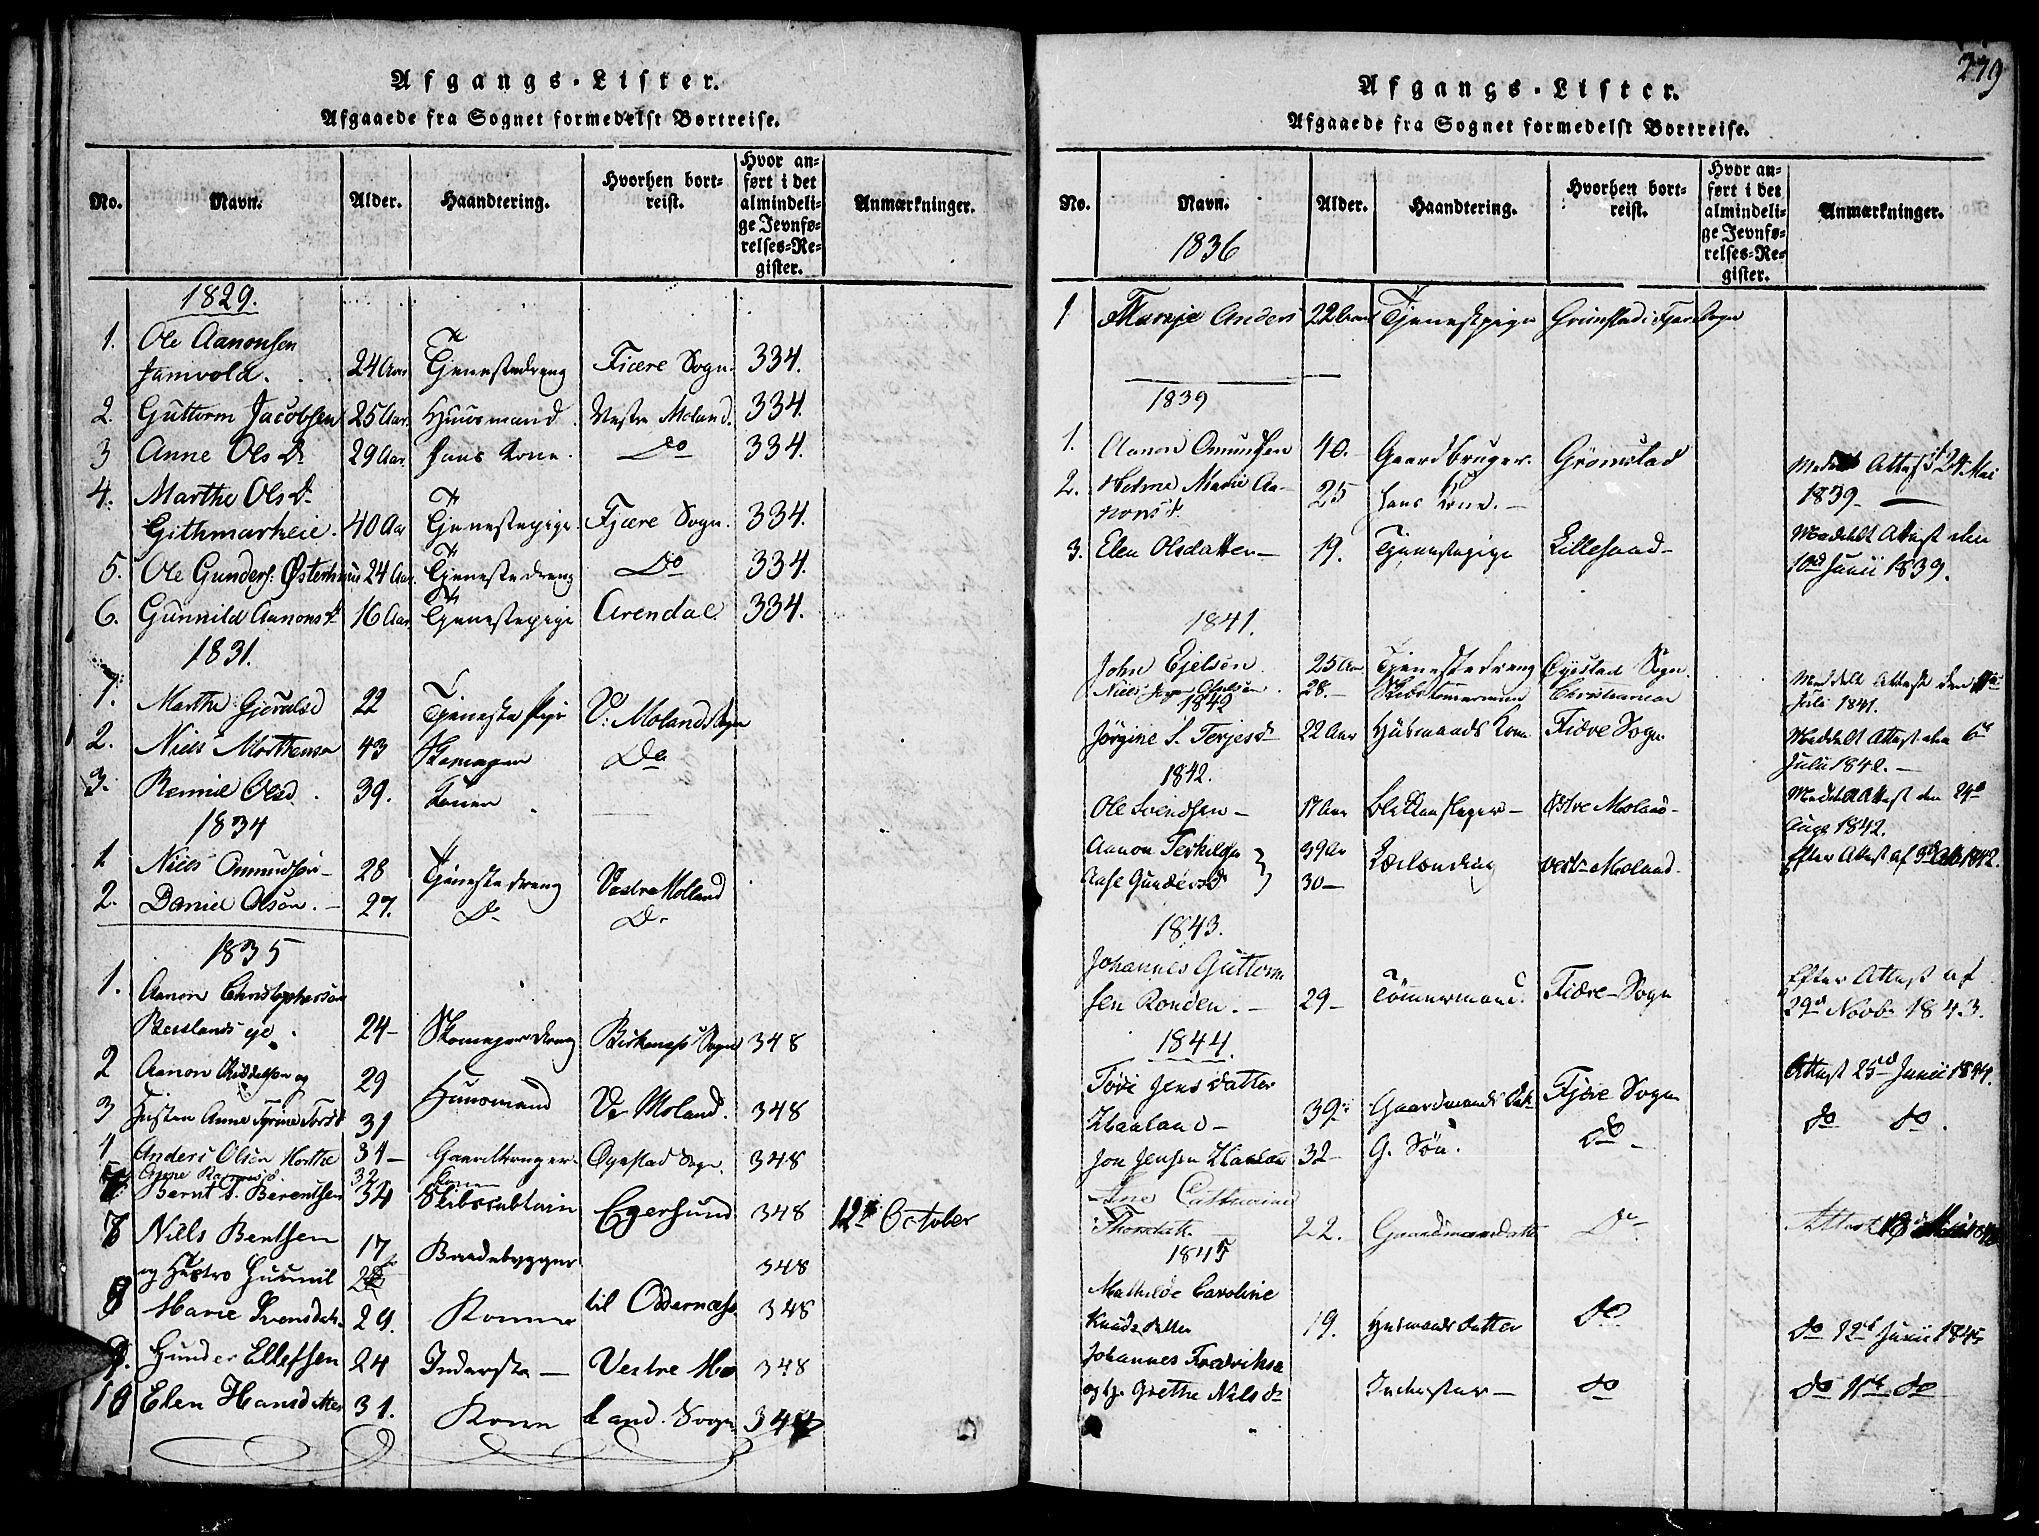 Afgangs-Lister.
Afgaaede fra Sognet formedelst Bortreise.
No. Navn. Alder. Haandtering. Hvorhen bortreist. Hvor anført i det almindelige Jevnførelses-Register. Anmærkninger.
1829.
1. Ole Aanonsen
Jamvold. 24 Aar Tjenestedreng Fiære Sogn. 334.
2. Guttorm Jacobsen 25 Aar. Huusmand. Vestre Moland. 334.
3 Anne Ols D. 29 Aar. hans Kone. Do 334.
4. Marthe Ols D.
Githmarkeie. 40 Aar Tjenestepige. Fjære Sogn. 334.
5. Ole Gunders: Østerhuus 24 Aar. Tjenestedreng Do 334.
6. Gunnild Aanons D. 16 Aar. Tjenestepige Arendal 334.
1831.
1. Marthe Gjerulsd 22 Tjeneste Pige V: Molands Sogn
2. Niels Morthensen 43 Skomager Do
3. Rennie Olsd. 39. Konen
1834
1 Niels Ommundsen 28 Tjenestedreng Vestre Molland
2. Daniel Olson. 27. Do Do
1835
1. Aanon Christophersen
Beislands eje. 24 Skomagerdreng Birkenæss Sogn 348
2 Aanon og 29 Huusmand Ve Moland. 348
3 Hustru Anne Tyrine Torsd 31
4 Anders Olsen Horthe 31 Gaardbruger Øyestad Sogn. 348
32 Konen
Bernt S. Berentsen 34 Skibscaptain Egersund 348 12te October
7 Niels Bentsen 17 Baadebygger
og Hustro Gunnil 348
8 Marie Svensdatt. 29. Konen til Oddernæss 348
9. Gunder Ellefsen 24 Inderste Vestre Mo 348
10 Elen Hansdatter 31. Konen land. Sogn 348
279
Afgangs-Lister.
Afgaaede fra Sognet formedelst Bortreise.
No. Navn. Alder. Haandtering. Hvorhen bortreist. Hvor anført i det almindelige Jevnførelses-Register. Anmærkninger.
1836
1 Tareje Anders 22 Aar Tjenestepige Grimstad i Fjære Sogn
1839
1. Aanon Omundsen 40. Gaardbruger. Grömstad Attest 24 Mai
2. Helene Marie Aa- 25 hans Kone. 1839.
nonsd.
3. Elen Olsdatter 19. Tjenestepige Lillesand Meddelt Attest den
10de Junii 1839.
1841.
John Ejelsen 25 Aar Tjenestedreng Øyestad Sogn. Meddelt Attest den
Niels 28. Skibstømmermand Christiansand Juli 1841.
1842
Jørgine S. Terjesd 22 Aar Husmands Kone Fiære Sogn Meddelt Attest den 6te
Julii 1842.
1842.
Ole Svendsen 17 Aar Blikkenslager Østre Moland Meddelt Attest den 24de
Augs 1842.
Aanon Terkilsen 39 Aar vest Moland Efter Attest af 1842.
Aase Gundersd 30
1843.
Johannes Guttorm
sen Ronden. 29 Tömmermand. Fiære Sogn Efter Attest af
29de Novbr 1843.
1844.
Töre Jensdatter Attest 25de Junii 1844.
Haaland 39. Gaardmands Dat. Fjære Sogn do do.
Jon Jensen Haaland 32 G. Søn. do
Ane Cathrine
Thorsdatt. 22. Gaardmandsdatter Do Attest
1845
Mathilde Caroline
Knudsdatter 19. Husmands Datter do do 12te Junii 1845
Johannes Fredriksen
og h. Grethe Nils D. Inderster do do 11te do